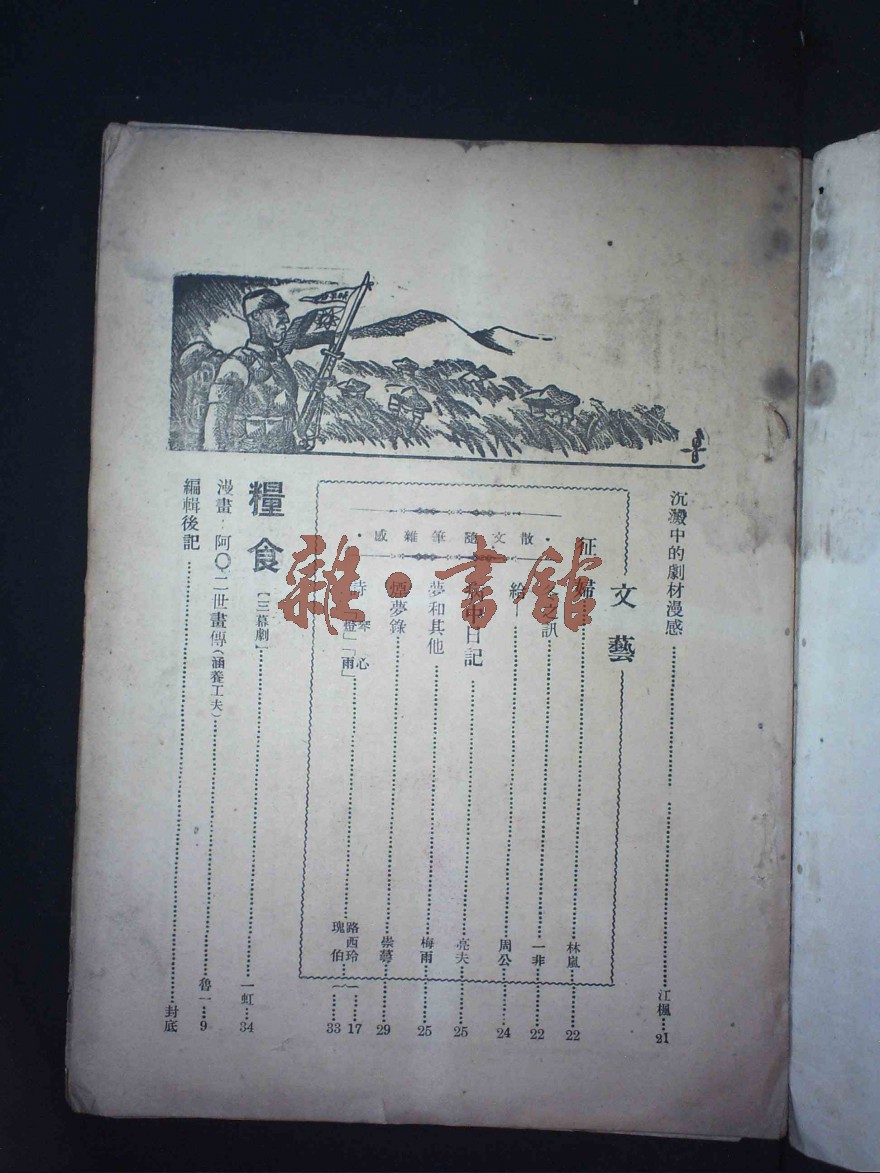 沉澱中的劇材漫感……江楓…21
文藝
·散文隨筆雜感·
征婦……林嵐…22
之訊……一非…22
給……周公…24
中日記……亮夫…25
夢和其他……梅雨…25
煙夢錄……崇藝…29
詩
琴心……路西玲…17
「燈」「雨」……瑰伯…33
糧食【三幕劇】……一虹…34
漫畫·阿〇二世畫傳(涵養工夫)……魯一…9
編輯後記……封底
雜·書館